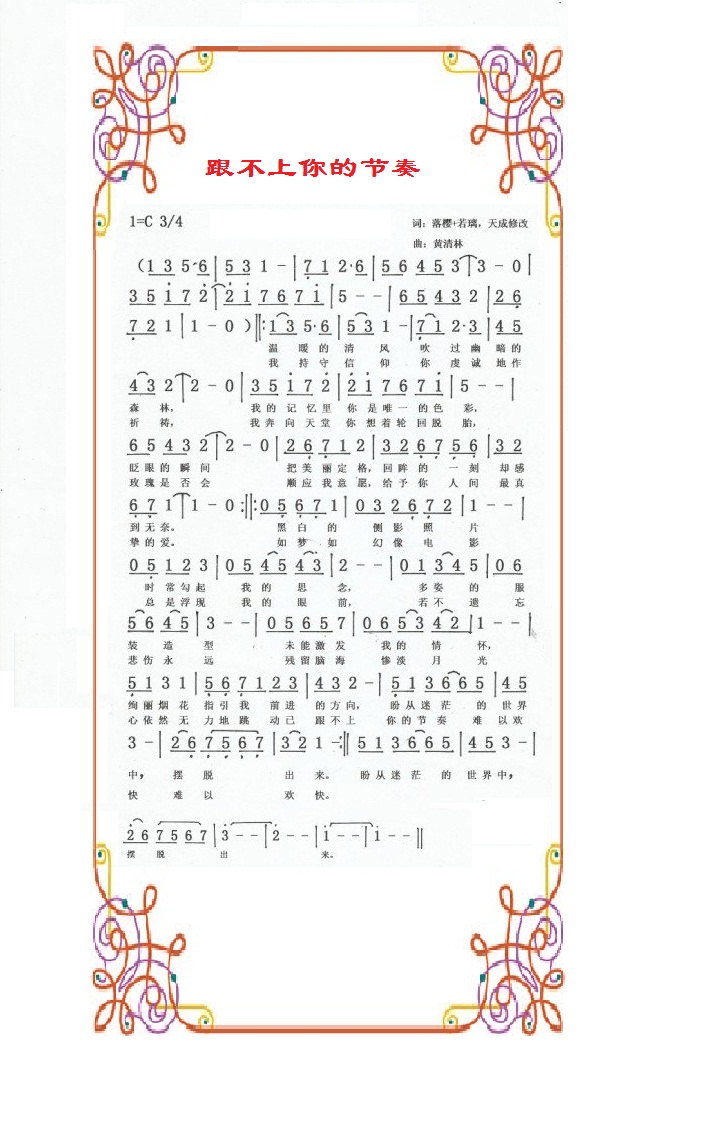 跟不上你的节奏
1=C 3/4
词：落樱+若璃，天成修改
曲：黄清林
（1 3 5·6 | 5 3 1 - | 7 1 2·6 | 5 6 4 5 3 | 3 - 0 |
3 5 1 7 2 | 2 1 7 6 7 1 | 5 - - | 6 5 4 3 2 | 2 6
7 2 1 | 1 - 0 ）‖: 1 3 5·6 | 5 3 1 - | 7 1 2·3 | 4 5
温 暖的 清 风 吹 过 幽 暗的
我 持守 信 仰 你 虔 诚 地作
4 3 2 | 2 - 0 | 3 5 1 7 2 | 2 1 7 6 7 1 | 5 - - |
森林， 我的 记 忆 里 你 是 唯 一 的 色 彩，
祈 祷， 我 奔 向 天 堂 你 想 着 轮 回 脱 胎，
6 5 4 3 2 | 2 - 0 | 2 6 7 1 2 | 3 2 6 7 5 6 | 3 2
眨 眼 的 瞬 间 把 美 丽 定 格，回 眸 的 一 刻 却 感
玫 瑰 是 否 会 顺 应 我 意 愿，给 予 你 人 间 最 真
6 7 1 | 1 - 0 :‖: 0 5 6 7 1 | 0 3 2 6 7 2 | 1 - - |
到 无 奈。 黑 白 的 侧 影 照 片
挚 的 爱。 如 梦 如 幻 像 电 影
0 5 1 2 3 | 0 5 4 5 4 3 | 2 - - | 0 1 3 4 5 | 0 6
时 常 勾 起 我 的 思 念， 多 姿 的 服
总 是 浮 现 我 的 眼 前， 若 不 遗 忘
5 6 4 5 | 3 - - | 0 5 6 5 7 | 0 6 5 3 4 2 | 1 - - |
装 造 型 未 能 激 发 我 的 情 怀，
悲 伤 永 远 残 留 脑 海 惨 淡 月 光
5 1 3 1 | 5 6 7 1 2 3 | 4 3 2 - | 5 1 3 6 6 5 | 4 5
绚 丽 烟 花 指 引 我 前 进 的 方 向， 盼 从 迷 茫 的 世 界
心 依 然 无 力 地 跳 动 已 跟 不 上 你 的 节 奏 难 以 欢
3 - | 2 6 7 5 6 7 | 3 2 1 - :‖ 5 1 3 6 6 5 | 4 5 3 - |
中， 摆 脱 出 来。 盼 从 迷 茫 的 世 界 中，
快 难 以 欢 快。
2 6 7 5 6 7 | 3 - - | 2 - - | 1 - - | 1 - - ‖
摆 脱 出 来。